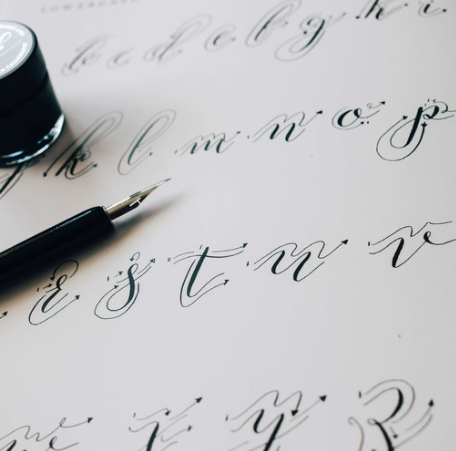 LOWERCASE
b c d e f g h i
k l m n o p
r s t u v
w x y z